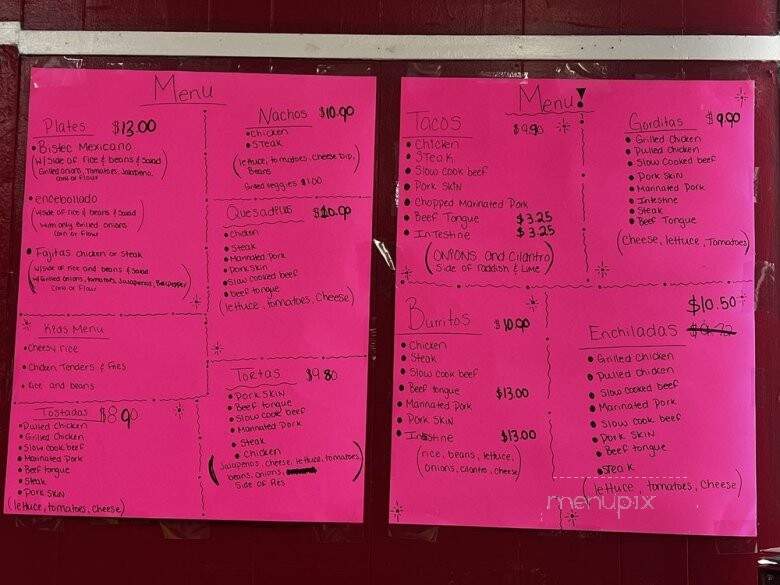 Menu
Plates $13.00
• Bistec Mexicano
(w/side of rice & beans & Salad
Grilled onions, tomatoes, Jalapeno,
corn or Flour
• encebollado
w/side of rice & beans & Salad
with only Grilled onions
corn or Flour
• Fajitas chicken or steak
w/side of rice and beans & Salad
w/Grilled onions, tomatoes, Jalapenos, Bellpepper
corn or Flour
Kids Menu
• Cheesy rice
• Chicken Tenders & Fries
• rice and beans
Tostadas
• Pulled Chicken
• Grilled Chicken
• Slow cook beef
• Marinated Pork
• Beef tongue
• Steak
• Pork SKIN
(lettuce, tomatoes, cheese)
Nachos
• Chicken
• Steak
(lettuce, tomatoes, cheese Dip,
Beans
Grilled veggies $1.00
• Chicken
• Steak
• Marinated Pork
• Pork SKIN
• Slow cooked beef
• beef tongue
(lettuce, tomatoes, Cheese)
Tortas
• Pork SKIN
• Beef tongue
• Slow cook beef
• Marinated Pork
• Steak
• Chicken
(Jalapenos, cheese, lettuce, tomatoes,
beans, onions,
Side of Res
Menu!
Tacos
• Chicken
• Steak
• Slow cook beef
• Pork SKIN
• Chopped Marinated Pork
• Beef Tongue $3.25
• InTestine $3.25
(ONIONS and Cilantro
Side of raddish & Lime)
Gorditas
• Grilled Chicken
• Pulled Chicken
• Slow Cooked beef
• Pork SKIN
• Marinated Pork
• Intestine
• Steak
• Beef Tongue
(Cheese, lettuce, Tomatoes)
Burritos
• Chicken
• Steak
• Slow cook beef
• Beef tongue $13.00
• Marinated Pork
• Pork SKIN
• Intestine $13.00
(rice, beans, lettuce,
onions, cilantro, cheese)
$10.50
Enchiladas
• Grilled Chicken
• Pulled Chicken
• Slow cooked beef
• Marinated Pork
• Slow cook beef
• Pork SKIN
• Beef tongue
• Steak
(lettuce, tomatoes, Cheese)
menupix